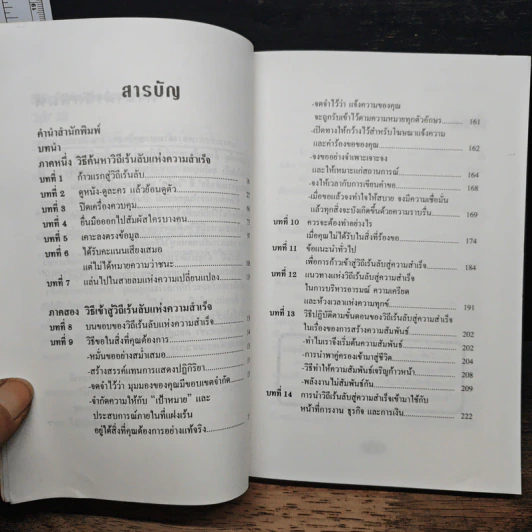 สารบัญ
คำนำสำนักพิมพ์
บทนำ
ภาคหนึ่ง วิธีค้นหาวิถีเร้นลับแห่งความสำเร็จ
บทที่ 1 ก้าวแรกสู่วิถีเร้นลับ
บทที่ 2 ดูหนัง-ดูละคร แล้วย้อนดูตัว
บทที่ 3 ปิดเครื่องควบคุม
บทที่ 4 ยื่นมือออกไปสัมผัสใครบางคน
บทที่ 5 เคาะลงตรงข้อมูล
บทที่ 6 ได้รับคะแนนเสียงเสมอ
แต่ไม่ได้หมายความว่าชนะ
บทที่ 7 แล่นไปในสายลมแห่งความเปลี่ยนแปลง
ภาคสอง วิธีเข้าสู่วิถีเร้นลับแห่งความสำเร็จ
บทที่ 8 บนขอบของวิถีเร้นลับแห่งความสำเร็จ
บทที่ 9 วิธีขอในสิ่งที่คุณต้องการ
-หมั่นขออย่างสม่ำเสมอ
-สร้างสรรค์แทนการแสดงปฏิกิริยา
-จดจำไว้ว่า มุมมองของคุณมีขอบเขตจำกัด
-จำกัดความให้กับ "เป้าหมาย" และ
ประสบการณ์ภายในที่แฝงเร้น
อยู่ใต้สิ่งที่คุณต้องการอย่างแท้จริง
-จดจำไว้ว่า แจ้งความของคุณ
จะถูกรับเข้าไว้ตามความหมายทุกตัวอักษร 161
-เปิดทางให้กว้างไว้สำหรับโฆษณาแจ้งความ
และคำร้องขอของคุณ 162
-จงขออย่างจำเพาะเจาะจง
และให้เหมาะแก่สถานการณ์ 164
-จงให้เวลากับการเขียนคำขอ 168
-เมื่อขอแล้วจงทำใจให้สบาย จงมีความเชื่อมั่น
แล้วทุกสิ่งจะบังเกิดขึ้นด้วยความราบรื่น 169
บทที่ 10 ควรจะต้องทำอย่างไร
เมื่อคุณไม่ได้รับในสิ่งที่ร้องขอ 174
บทที่ 11 ข้อแนะนำทั่วไป
เพื่อการก้าวเข้าสู่วิถีเร้นลับสู่ความสำเร็จ 184
บทที่ 12 แนวทางแห่งวิถีเร้นลับสู่ความสำเร็จ
ในการบริหารอารมณ์ ความเครียด
และห้วงเวลาแห่งความทุกข์ 191
บทที่ 13 วิธีปฏิบัติตามขั้นตอนของวิถีเร้นลับสู่ความสำเร็จ
ในเรื่องของการสร้างความสัมพันธ์ 202
-ทำไมเราจึงเริ่มต้นความสัมพันธ์ 202
-การนำพาคู่ครองเข้ามาสู่ชีวิต 204
-วิธีทำให้ความสัมพันธ์เจริญก้าวหน้า 208
-พลังงานในสัมพันธ์กัน 209
บทที่ 14 การนำวิถีเร้นลับสู่ความสำเร็จเข้ามาใช้กับ
หน้าที่การงาน ธุรกิจ และการเงิน 222